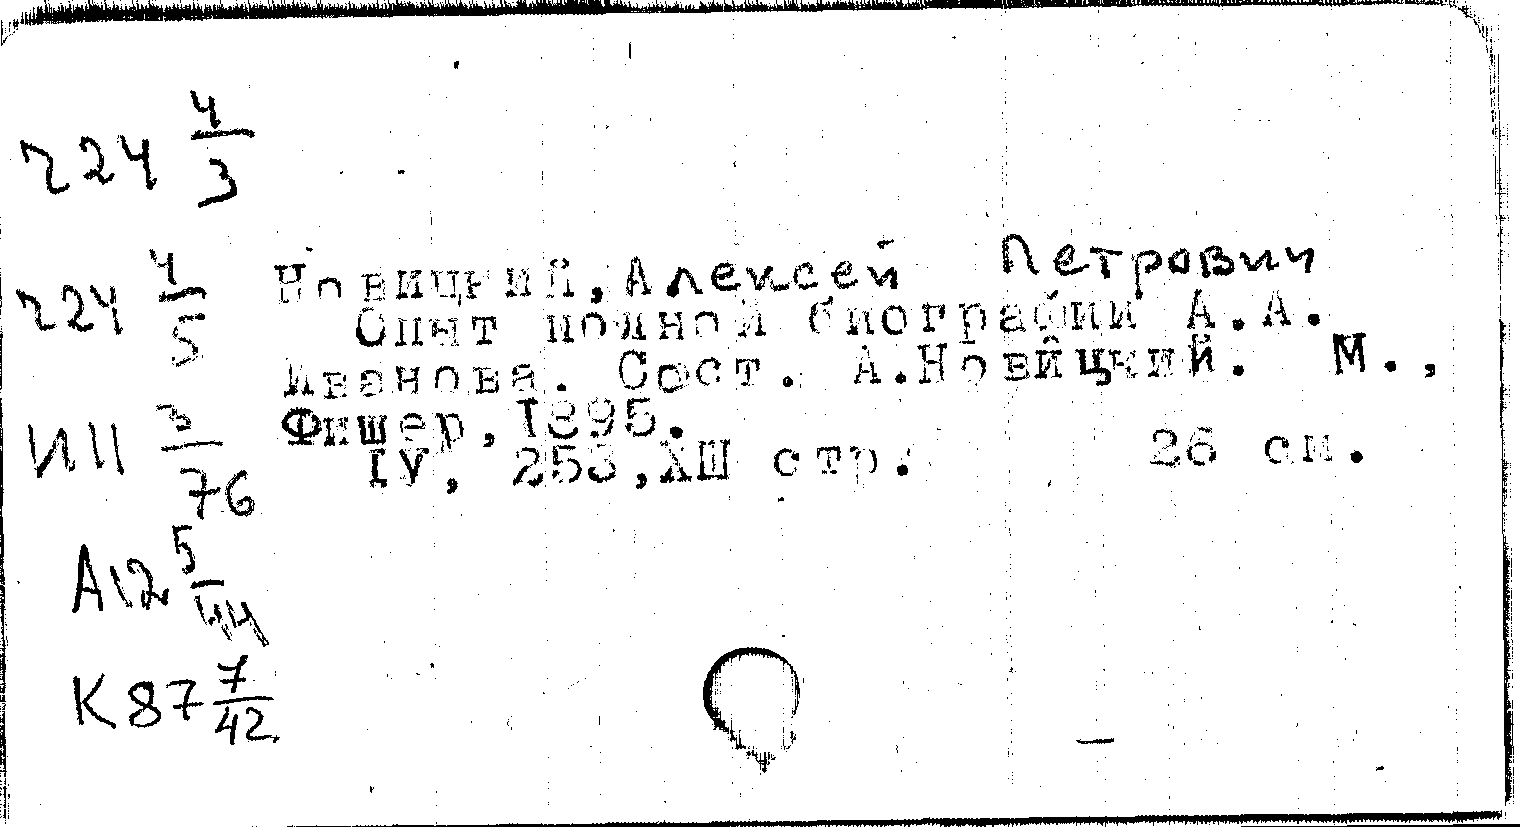 ч24 4/3
ч24 4/5
И11 3/76
А12 5/44
К87 7/42
Новицкий, Алексей Петрович
Опыт полной биографии А.А.
Иванова. Сост. А.Новицкий. М.,
Фишер, 1895.
IУ, 253, ХШ стр. 26 см.